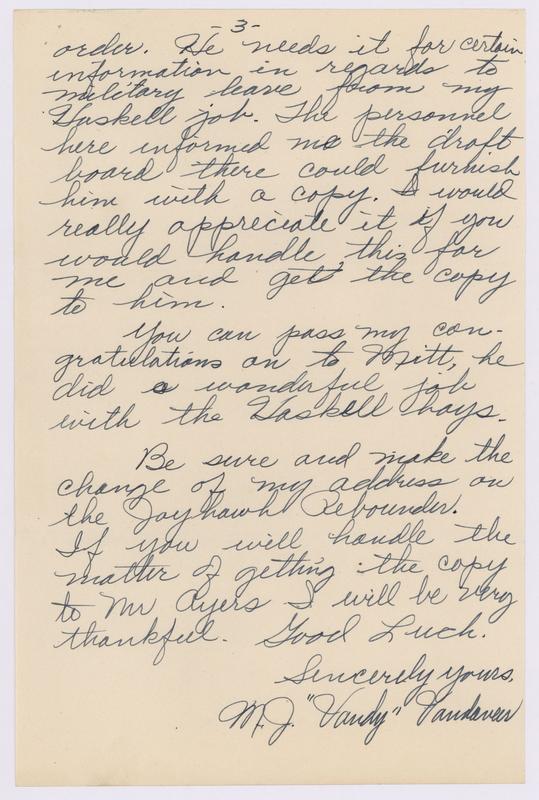 -3-
order. He needs it for certain
information in regards to
military leave from my
Haskell job. The personnel
here informed me the draft
board there could furnish
him with a copy. I would
really appreciate it if you
would handle this for
me and get the copy
to him.
You can pass my con-
gratulations on to Mitt, he
did a wonderful job
with the Haskell boys.
Be sure and make the
change of my address on
the Jayhawk Rebounder.
If you will handle the
matter of getting the copy
to Mr Ayers I will be very
thankful. Good Luck.
Sincerely yours,
M.J. "Vandy" Vandaveer